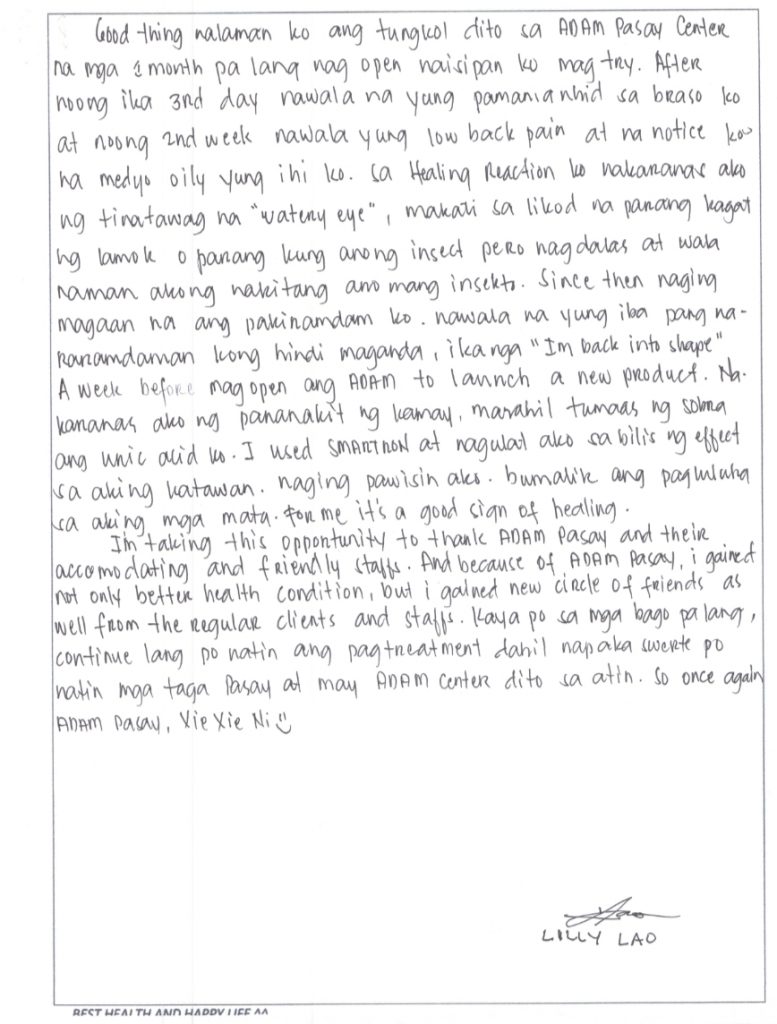 Good thing nalaman ko ang tungkol dito sa ADAM Pasay Center
na mga 1 month pa lang nag open naisipan ko mag try. After
noong ika 3rd day nawala na yung pamamanhid sa braso ko
at noong 2nd week nawala yung low back pain at na notice ko
na medyo oily yung ihi ko. sa Healing Reaction ko nakaranas ako
ng tinatawag na "watery eye", makati sa likod na parang kagat
ng lamok o parang kung anong insect pero nagdalas at wala
naman akong nakitang ano mang insekto. Since then naging
magaan na ang pakiramdam ko. nawala na yung iba pang na-
raramdaman kong hindi maganda, ika nga "Im back into shape"
A week before mag open ang ADAM to launch a new product. Na-
karanas ako ng pananakit ng kamay, marahil tumaas ng sobra
ang uric acid ko. I used SMARTRON at nagulat ako sa bilis ng effect
sa aking katawan. naging pawisin ako. bumalik ang pagluluha
sa aking mga mata. For me it's a good sign of healing.
Im taking this opportunity to thank ADAM Pasay and their
accomodating and friendly staffs. And because of ADAM Pasay, i gained
not only better health condition, but i gained new circle of friends as
well from the regular clients and staffs. Kaya po sa mga bago pa lang,
continue lang po natin ang pagtreatment dahil napaka swerte po
natin mga taga Pasay at may ADAM Center dito sa atin. So once again
ADAM Pasay, Xie Xie Ni
LILLY LAO
BEST HEALTH AND HAPPY LIFE AA